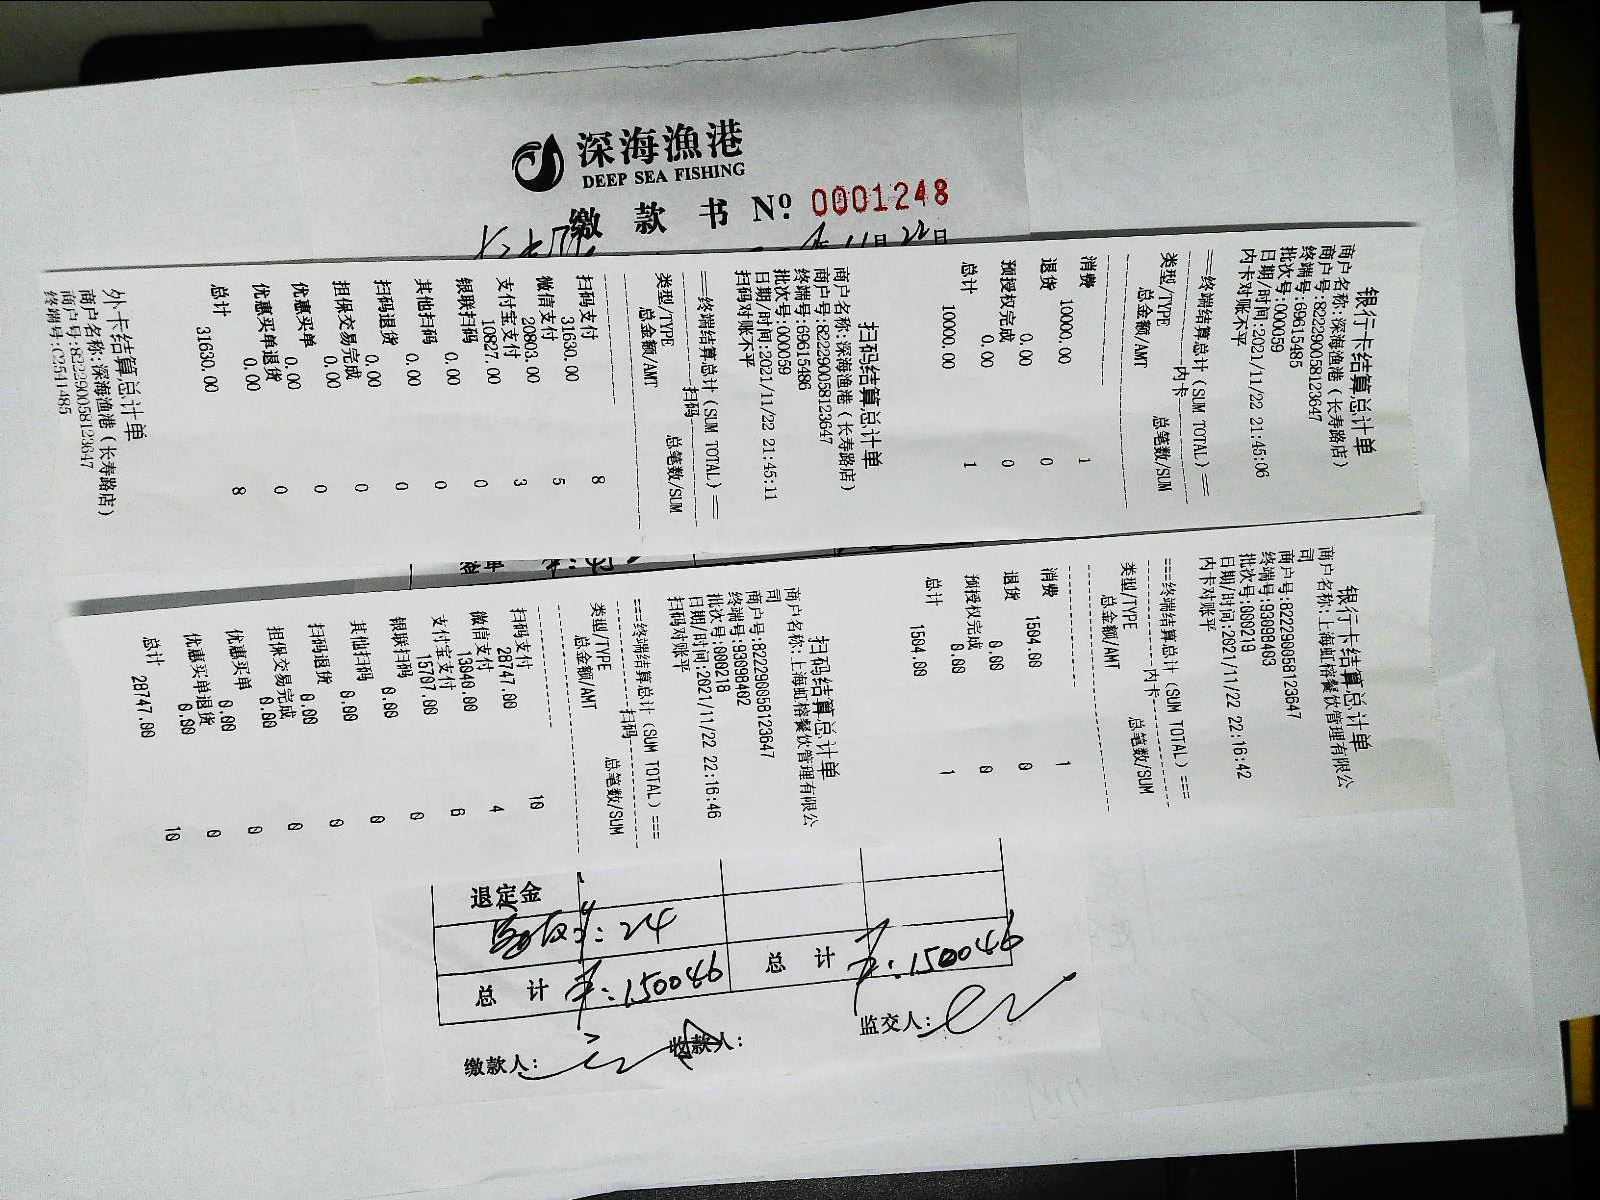 深海渔港
DEEP SEA FISHING
缴款书 Nº 0001248
11月22日
银行卡结算总计单
商户名称:深海渔港(长寿路店)
商户号:822290058123647
终端号:69615485
批次号:000059
日期/时间:2021/11/22 21:45:06
内卡对账不平
==终端结算总计(SUM TOTAL)==
----内卡----
类型/TYPE 总笔数/SUM
总金额/AMT
消费 1
10000.00
退货 0
0.00
预授权完成 0
0.00
总计 1
10000.00
扫码结算总计单
商户名称:深海渔港(长寿路店)
商户号:822290058123647
终端号:69615486
批次号:000059
日期/时间:2021/11/22 21:45:11
扫码对账不平
==终端结算总计(SUM TOTAL)==
----扫码----
类型/TYPE 总笔数/SUM
总金额/AMT
扫码支付 8
31630.00
微信支付 5
20803.00
支付宝支付 3
10827.00
银联扫码 0
0.00
其他扫码 0
0.00
扫码退货 0
0.00
担保交易完成 0
0.00
优惠买单 0
0.00
优惠买单退货 0
0.00
总计 8
31630.00
外卡结算总计单
商户名称:深海渔港(长寿路店)
商户号:822290058123647
终端号:C2541485
银行卡结算总计单
商户名称:上海虹榕餐饮管理有限公
司
商户号:822290058123647
终端号:93098403
批次号:000219
日期/时间:2021/11/22 22:16:42
内卡对账平
===终端结算总计(SUM TOTAL)===
----内卡----
类型/TYPE 总笔数/SUM
总金额/AMT
消费 1
1504.00
退货 0
0.00
预授权完成 0
0.00
总计 1
1504.00
扫码结算总计单
商户名称:上海虹榕餐饮管理有限公
司
商户号:822290058123647
终端号:93098402
批次号:000218
日期/时间:2021/11/22 22:16:46
扫码对账平
===终端结算总计(SUM TOTAL)===
----扫码----
类型/TYPE 总笔数/SUM
总金额/AMT
扫码支付 10
28747.00
微信支付 4
13040.00
支付宝支付 6
15707.00
银联扫码 0
0.00
其他扫码 0
0.00
扫码退货 0
0.00
担保交易完成 0
0.00
优惠买单 0
0.00
优惠买单退货 0
0.00
总计 10
28747.00
退定金
: 24
总计 :150046 总计 :150046
缴款人: 收款人: 监交人: